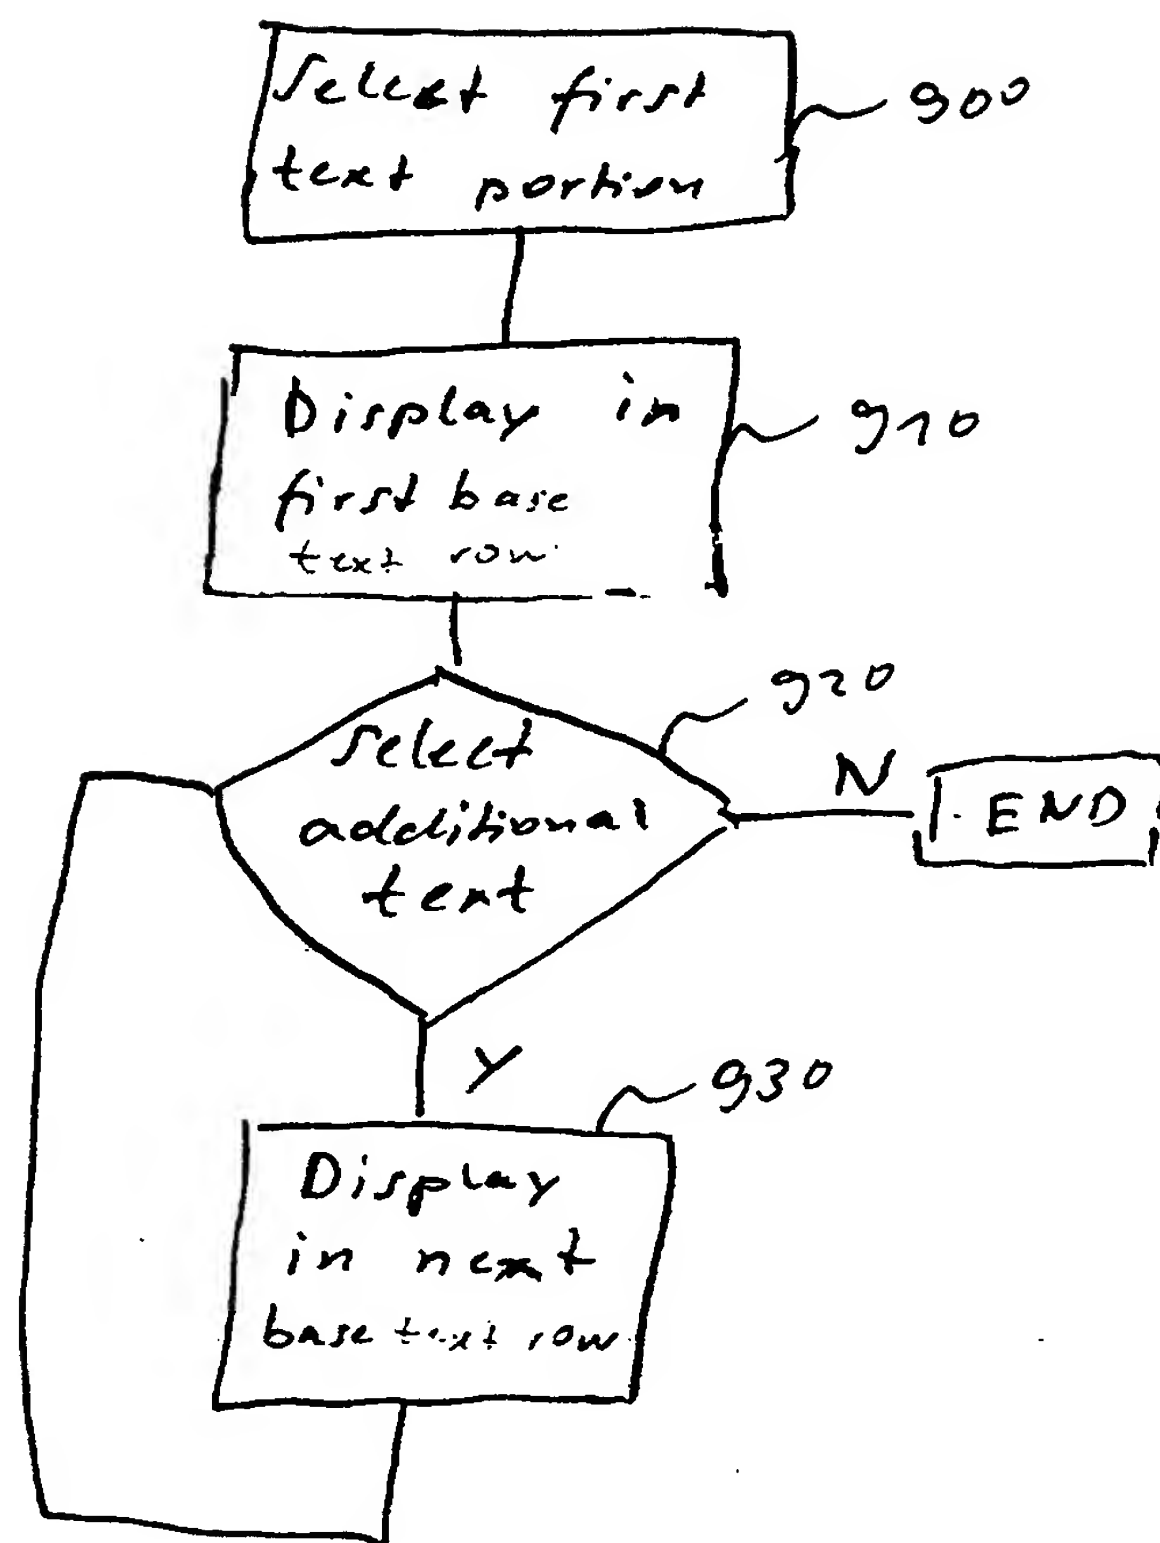 Select first
text portion
900
Display in
first base
text row
910
920
Select
additional
text
N
END
Y
930
Display
in next
base text row